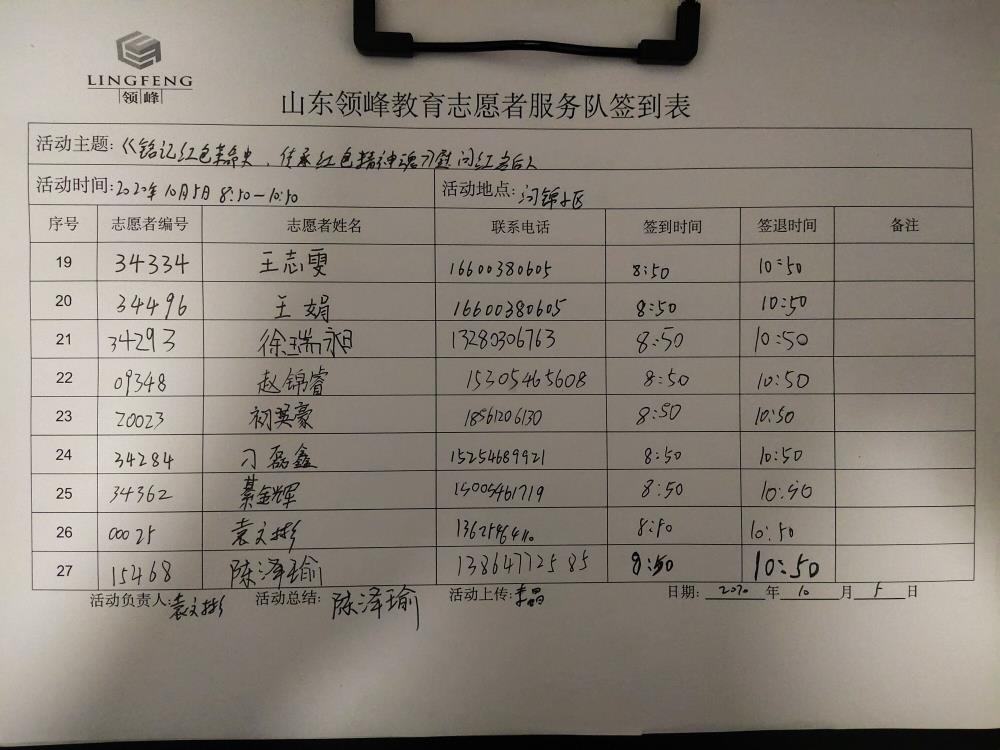 LINGFENG
领峰
山东领峰教育志愿者服务队签到表
活动主题:《铭记红色革命史、传承红色精神魂》慰问红色后人
活动时间:2020年10月5日 8:50—10:50 活动地点:河锦小区
序号 志愿者编号 志愿者姓名 联系电话 签到时间 签退时间 备注
19 34334 王志雯 16600380605 8:50 10:50
20 34496 王娟 16600380605 8:50 10:50
21 34293 徐瑞昶 13280306763 8:50 10:50
22 09348 赵锦睿 15305465608 8:50 10:50
23 20023 初英豪 18561206130 8:50 10:50
24 34284 刁磊鑫 15254689921 8:50 10:50
25 34362 綦金辉 15005461719 8:50 10:50
26 00025 袁文彬 8:50 10:50
27 15468 陈泽瑜 13864772585 8:50 10:50
活动负责人:袁文彬 活动总结:陈泽瑜 活动上传:李晶 日期: 2020 年 10 月 5 日